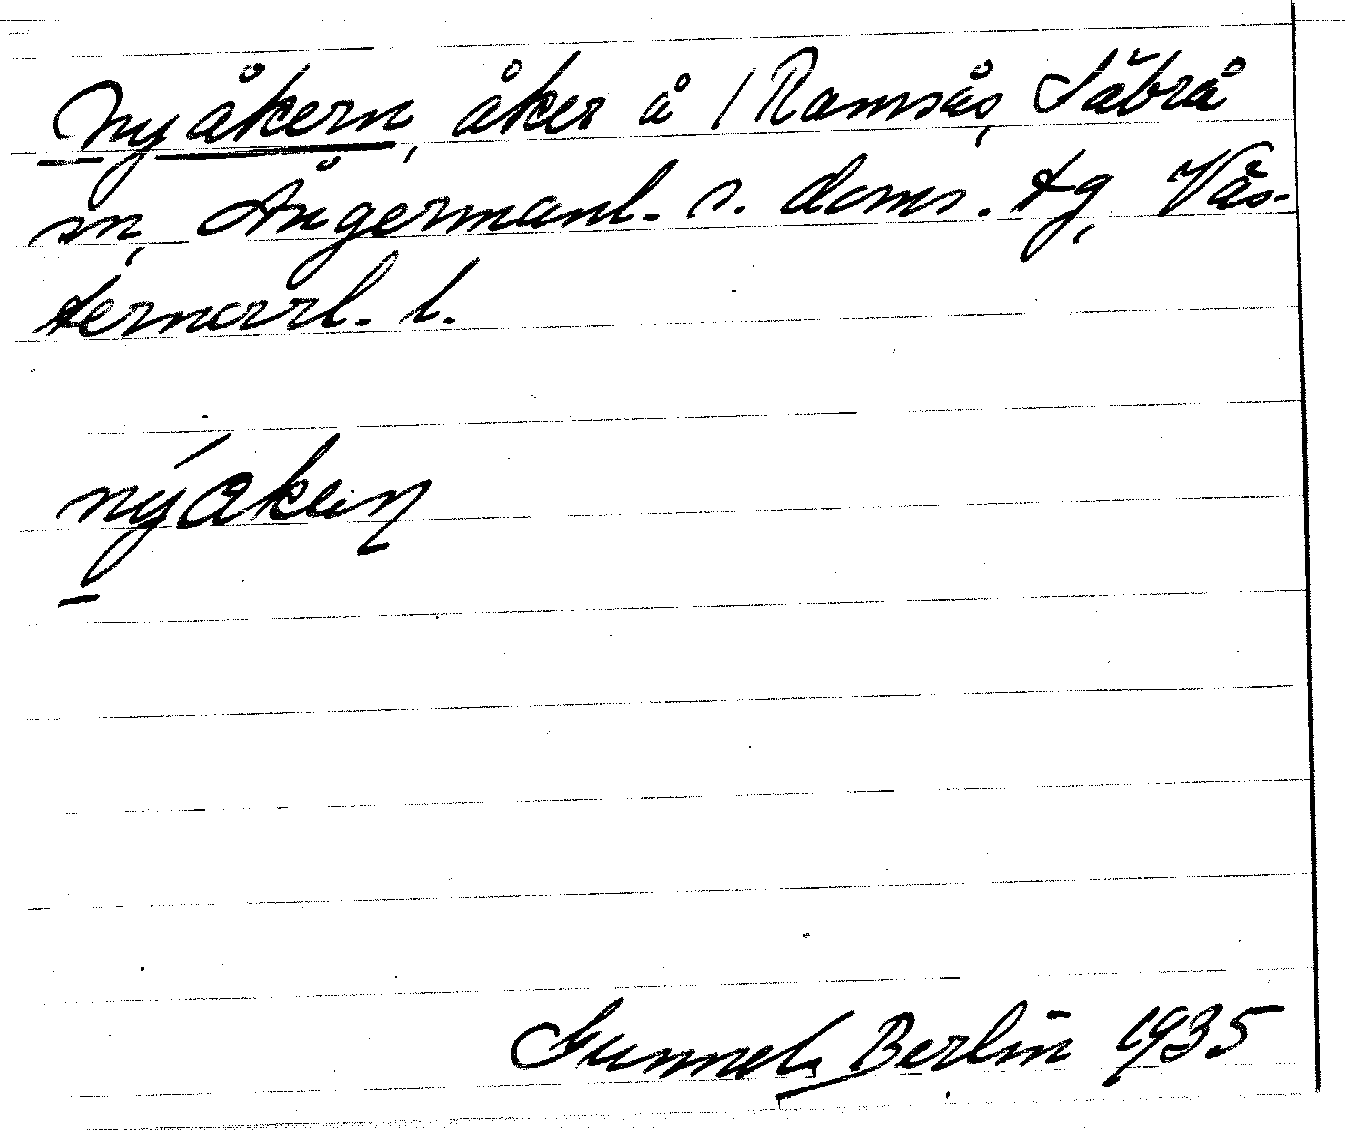 Nyåkern, åker å 1 Ramsås, Säbrå
sn, Ångermanl. s. doms. tg, Väs-
ternorrl. l.
nýakeɳ
Gunnel Berlin 1935